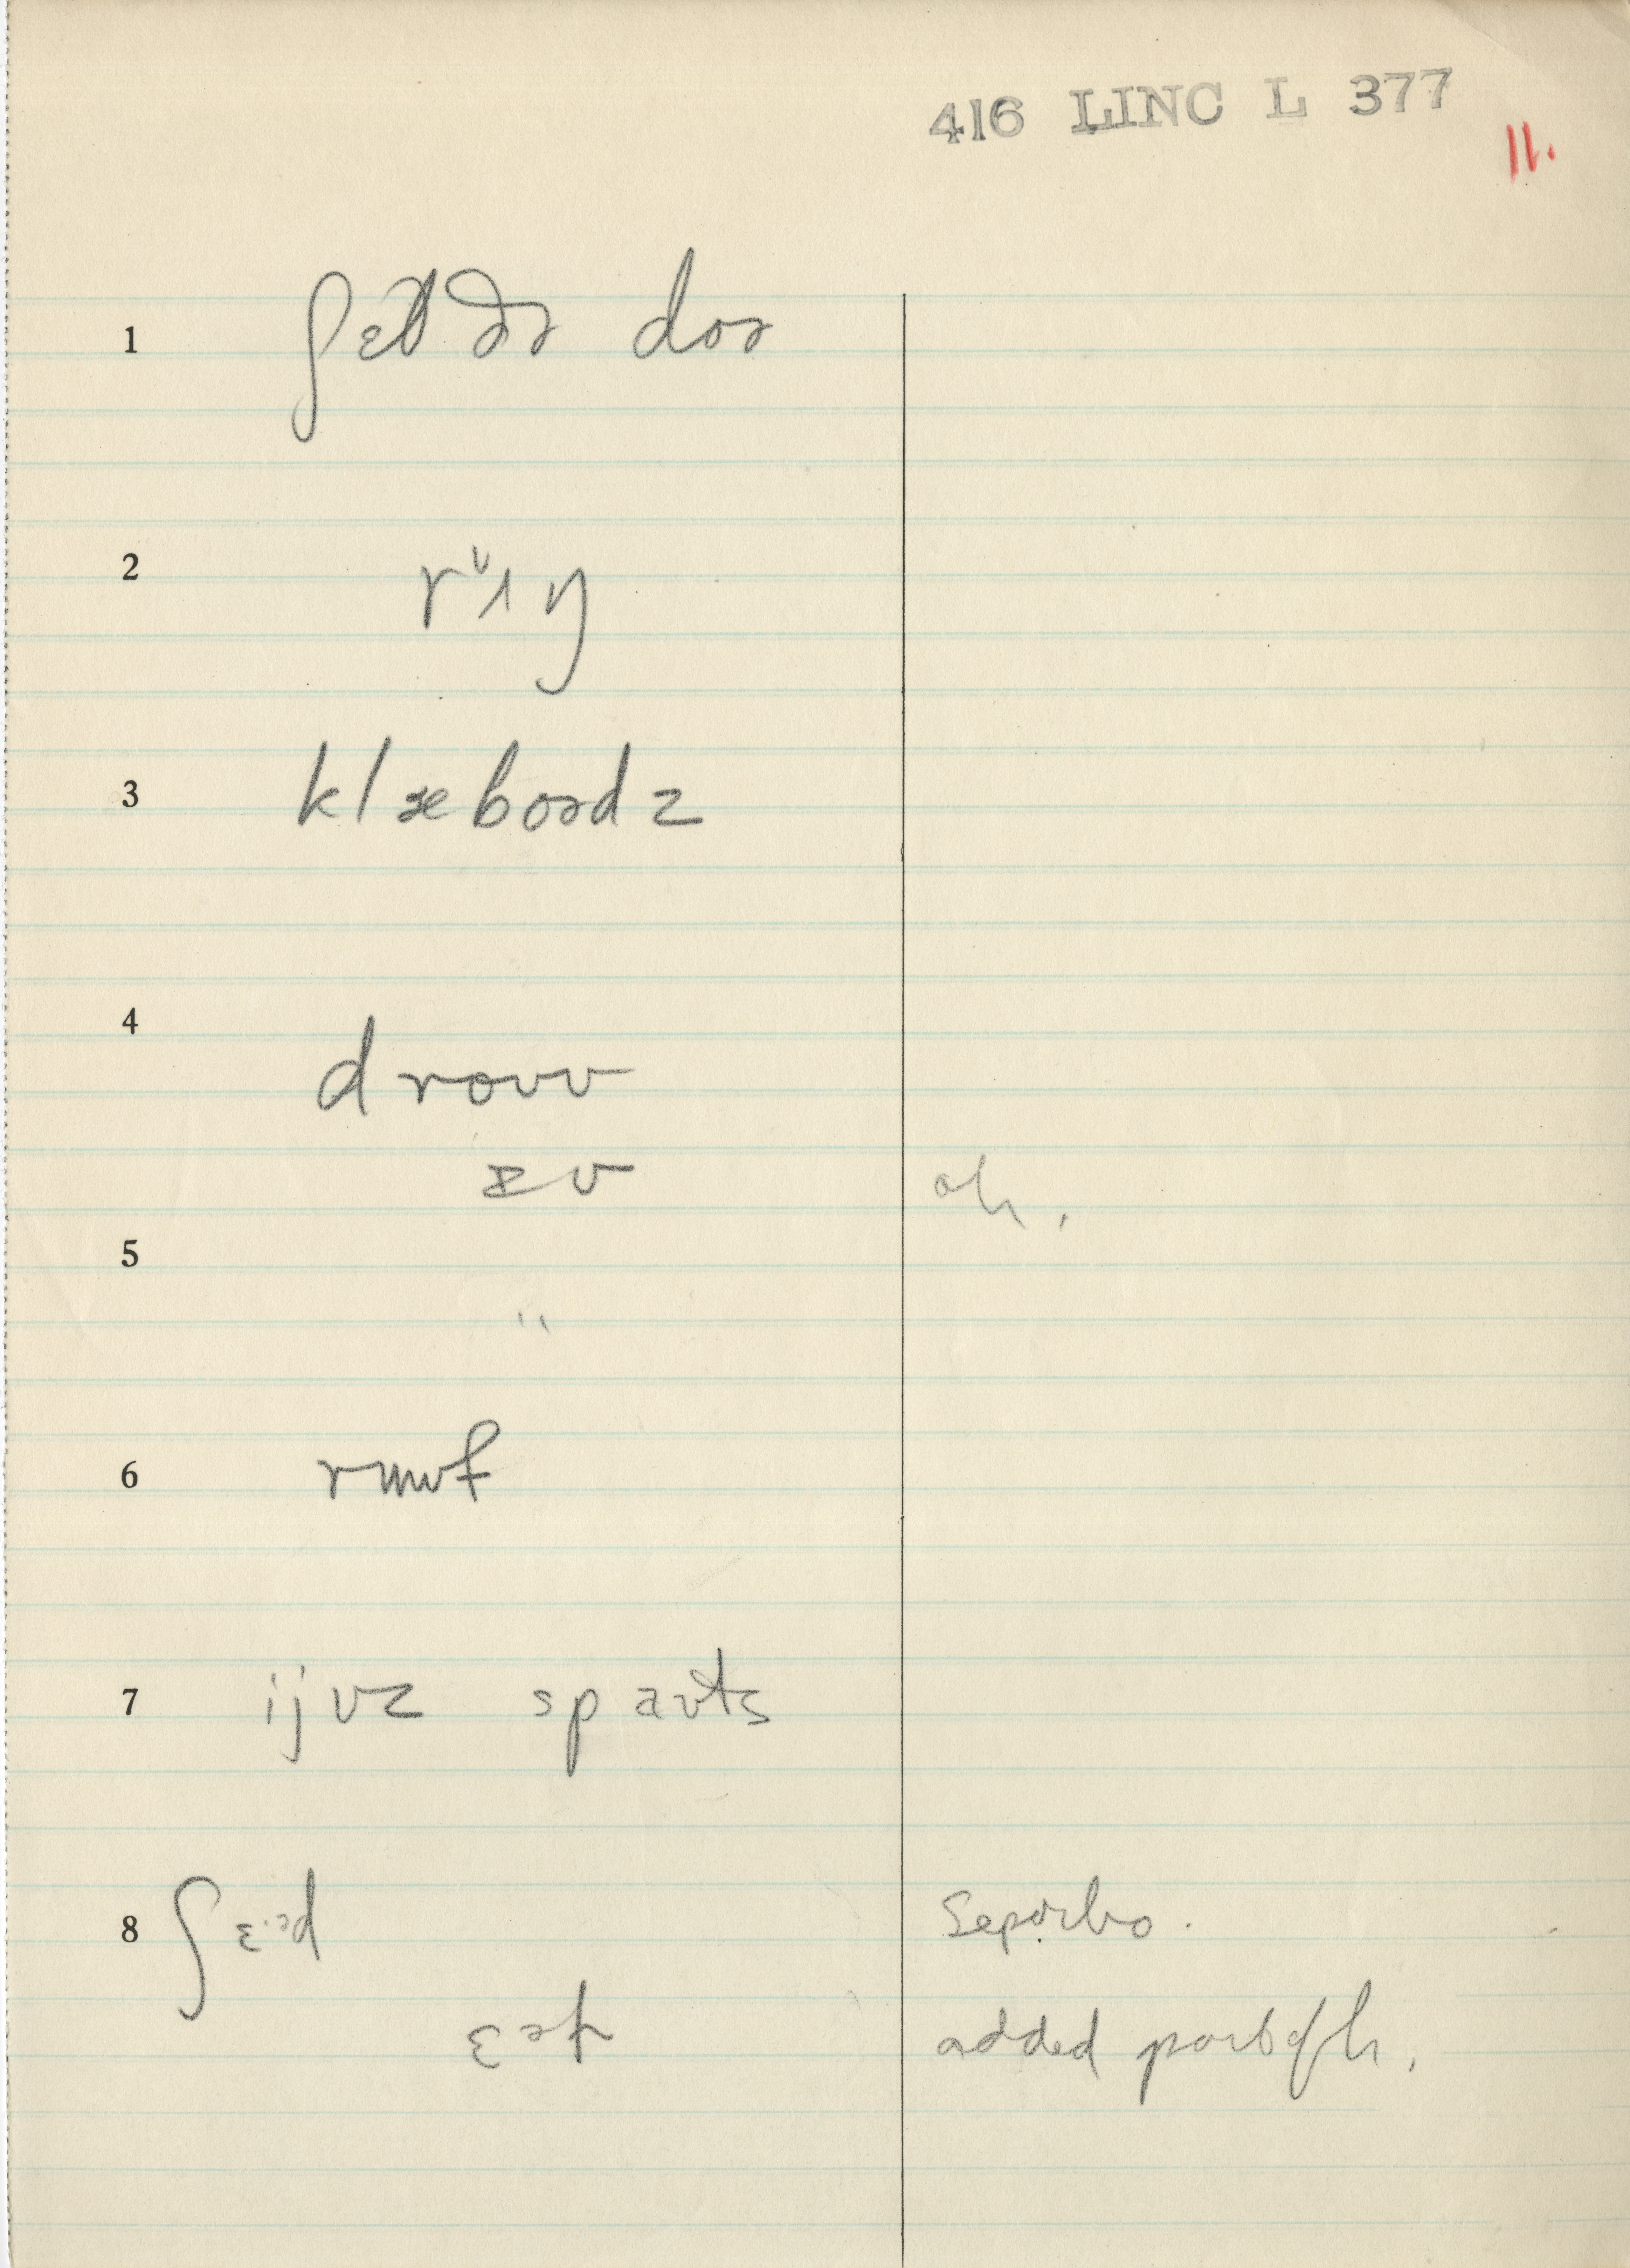 416 LINC L 377
11.
1 ʃɛt ðə doə
2 rᶷɪŋ
3 klæboədz
4 droʊv
ɪv oh,
5 "
6 rʊuf
7 ijvz spaʊts
8 ʃɛ·əd Separbo.
ɛəf added part of h,